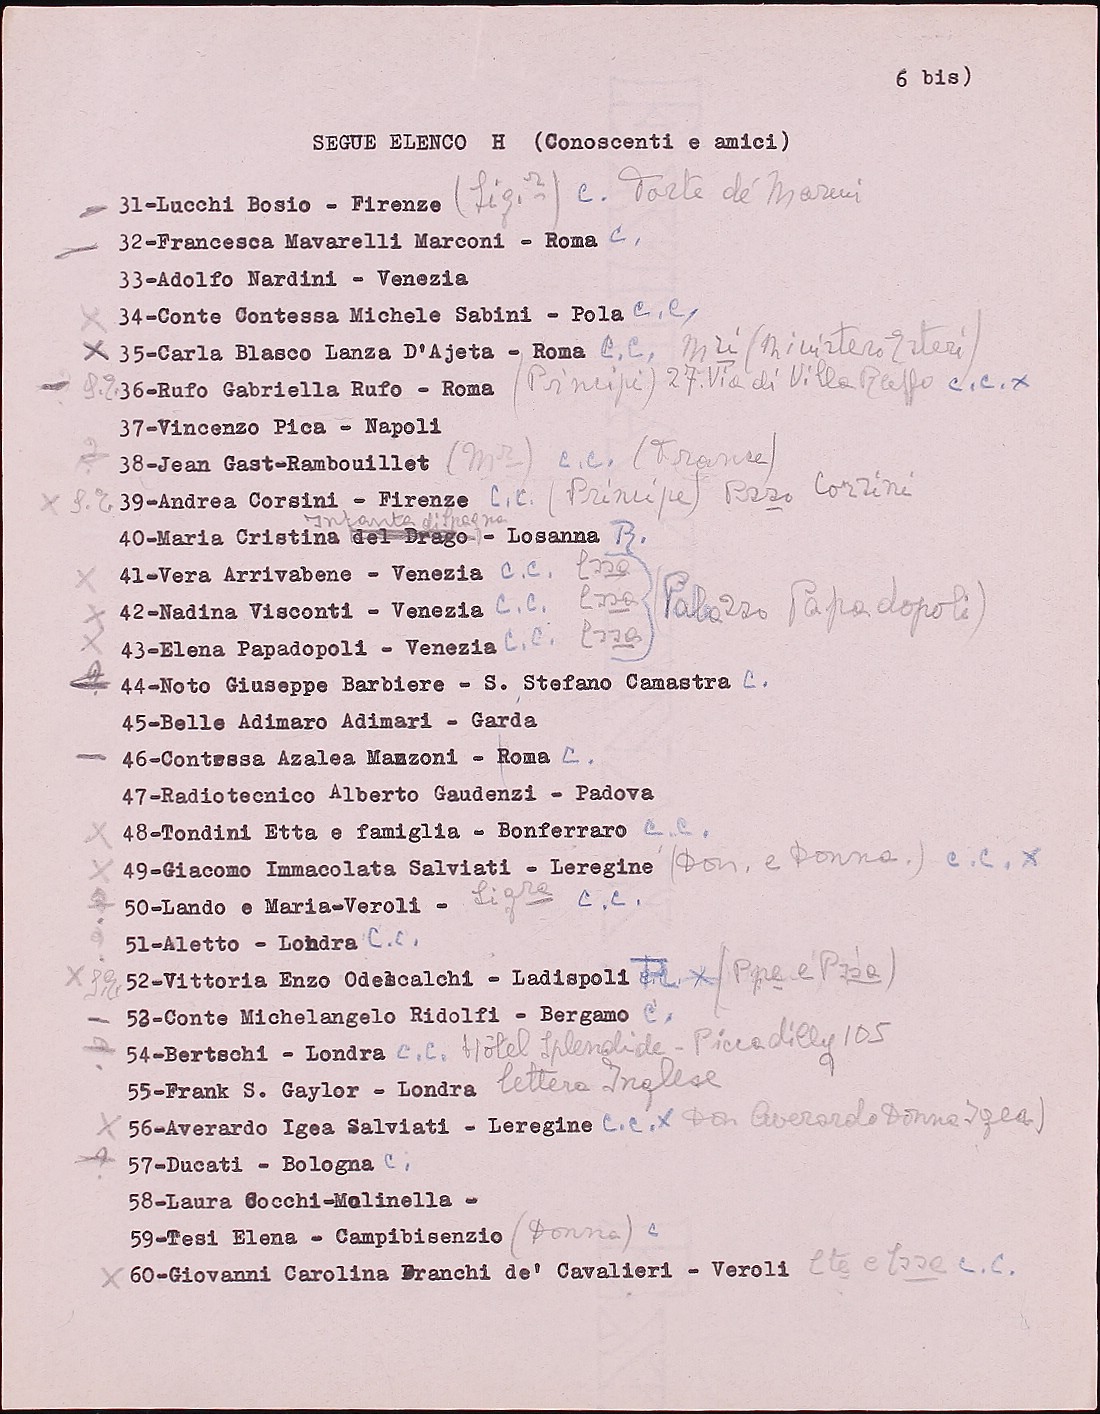 6 bis)
SEGUE ELENCO H (Conoscenti e amici)
31-Lucchi Bosio - Firenze (Sig.ra) c. Forte de Marmi
32-Francesca Mavarelli Marconi - Roma c.
33-Adolfo Nardini - Venezia
X 34-Conte Contessa Michele Sabini - Pola c.c.
X 35-Carla Blasco Lanza D'Ajeta - Roma c.c. (Ministero Esteri)
36-Rufo Gabriella Rufo - Roma (Principi) 27. Via di Villa Ruffo c.c. x
37-Vincenzo Pica - Napoli
? 38-Jean Gast-Rambouillet (Mr) c.c. (France)
X 39-Andrea Corsini - Firenze c.c. (Principe) Pzzo Corsini
Infanta di Spagna
40-Maria Cristina del Drago - Losanna R.
X 41-Vera Arrivabene - Venezia c.c. Cssa
X 42-Nadina Visconti - Venezia c.c. Cssa (Palazzo Papadopoli)
X 43-Elena Papadopoli - Venezia c.c. Cssa
44-Noto Giuseppe Barbiere - S. Stefano Camastra c.
45-Belle Adimaro Adimari - Garda
46-Contessa Azalea Manzoni - Roma c.
47-Radiotecnico Alberto Gaudenzi - Padova
X 48-Tondini Etta e famiglia - Bonferraro c.c.
X 49-Giacomo Immacolata Salviati - Leregine (Don. e Donna.) c.c. x
? 50-Lando e Maria-Veroli - Sigra c.c.
? 51-Aletto - Londra c.c.
X 52-Vittoria Enzo Odescalchi - Ladispoli x (Ppe e Pssa)
53-Conte Michelangelo Ridolfi - Bergamo c.
? 54-Bertschi - Londra c.c. Hôtel Splendide - Piccadilly 105
55-Frank S. Gaylor - Londra lettera Inglese
X 56-Averardo Igea Salviati - Leregine c.c. x Don Averardo Donna Igea)
57-Ducati - Bologna c.
58-Laura Cocchi-Molinella -
59-Tesi Elena - Campibisenzio (Donna) c
X 60-Giovanni Carolina Franchi de' Cavalieri - Veroli Cte e Cssa c.c.